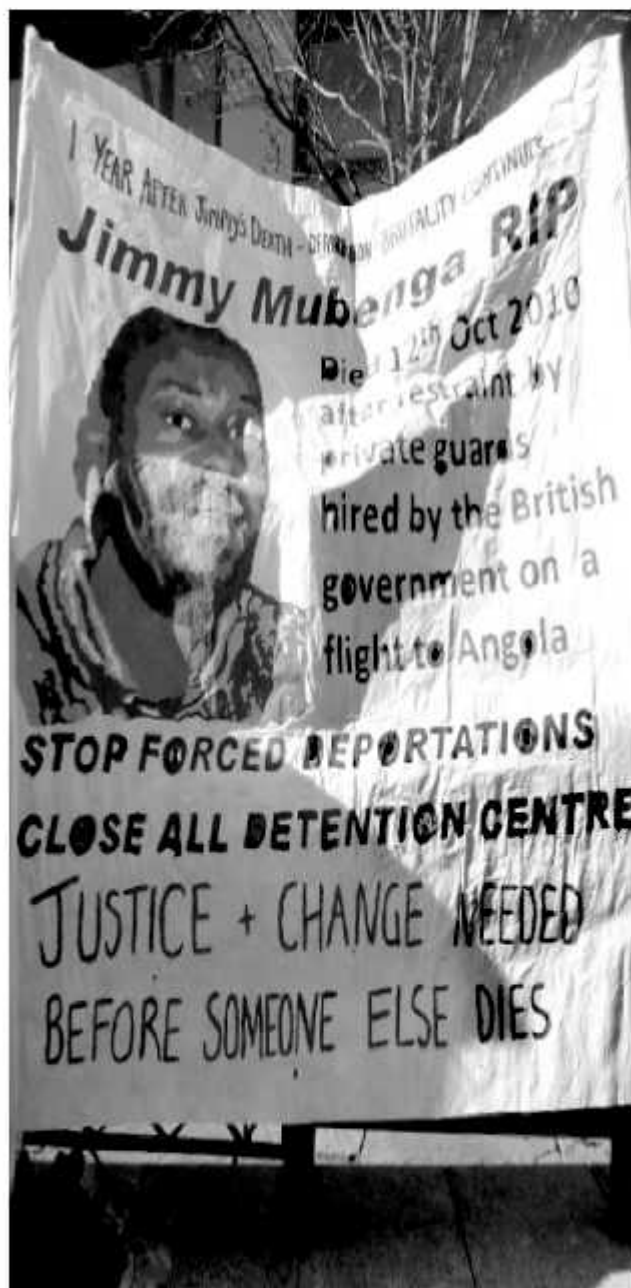 1 YEAR AFTER JIMMY'S DEATH - DEPORTATION BRUTALITY CONTINUES
Jimmy Mubenga RIP
Died 12th Oct 2010
after restraint by
private guards
hired by the British
government on a
flight to Angola
STOP FORCED DEPORTATIONS
CLOSE ALL DETENTION CENTRE
JUSTICE + CHANGE NEEDED
BEFORE SOMEONE ELSE DIES